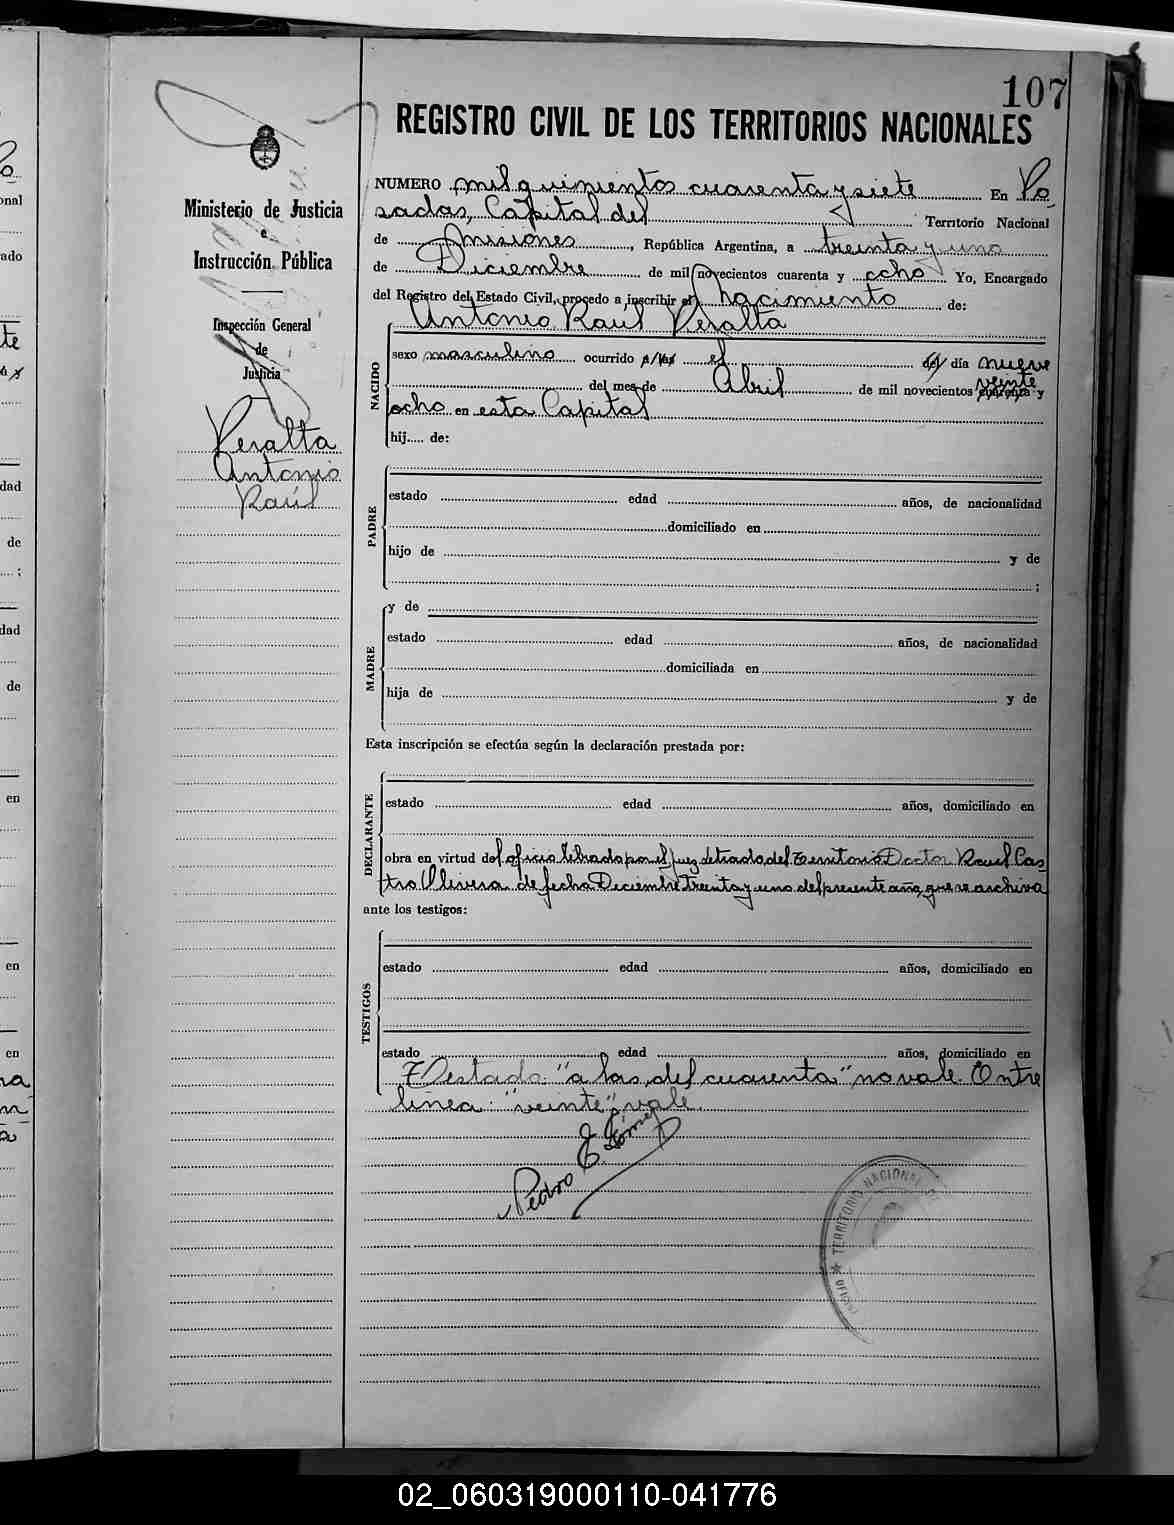 107
REGISTRO CIVIL DE LOS TERRITORIOS NACIONALES
Ministerio de Justicia
e
Instrucción Pública
Inspección General
de
Justicia
Peralta
Antonio
Raúl
NUMERO mil quinientos cuarenta y siete En Po
sadas, Capital del Territorio Nacional
de Misiones, República Argentina, a treinta y uno
de Diciembre de mil novecientos cuarenta y ocho Yo, Encargado
del Registro del Estado Civil, procedo a inscribir el nacimiento de:
Antonio Raúl Peralta
NACIDO
sexo masculino ocurrido a/las el del día nueve
del mes de Abril de mil novecientos cuarenta y
veinte
ocho en esta Capital
hij..... de:
PADRE
estado edad años, de nacionalidad
domiciliado en
hijo de y de
;
MADRE
y de
estado edad años, de nacionalidad
domiciliada en
hija de y de
Esta inscripción se efectúa según la declaración prestada por:
DECLARANTE
estado edad años, domiciliado en
obra en virtud del oficio librado por el Juez Letrado del Territorio Doctor Raúl Cas-
tro Olivera de fecha Diciembre treinta y uno del presente año, que se archiva
ante los testigos:
TESTIGOS
estado edad años, domiciliado en
estado edad años, domiciliado en
Testado: "a las, del cuarenta" no vale. Entre
línea: "veinte", vale.
Pedro E. Gómez
TERRITORIO NACIONAL
02_060319000110-041776